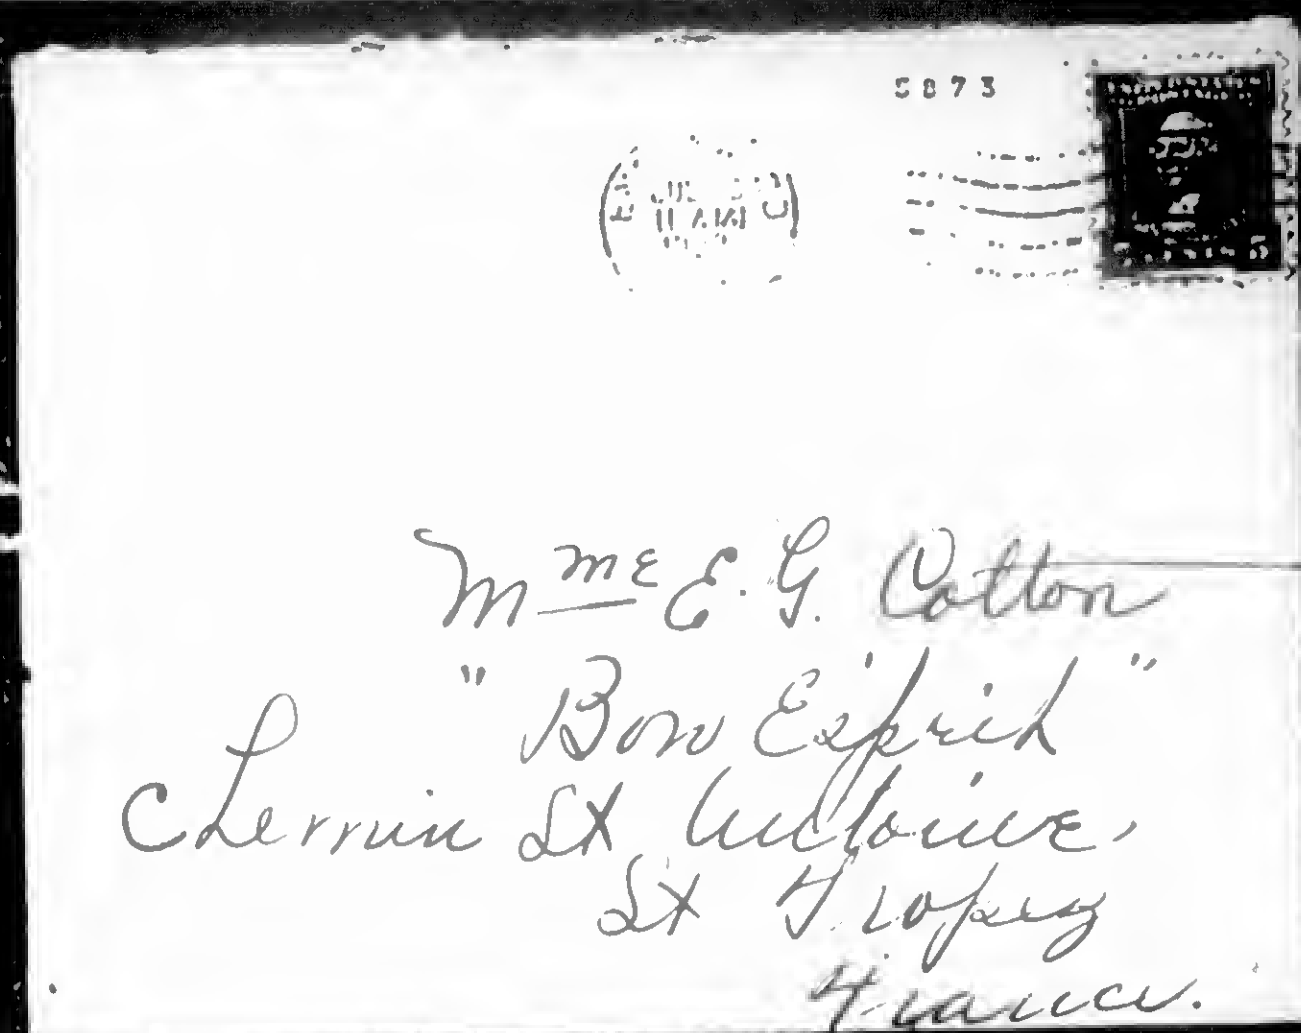 5873
JUL
11 AM
Mme E. G. Cotton
"Bon Esprit"
Chemin St Antoine,
St Tropez
France.